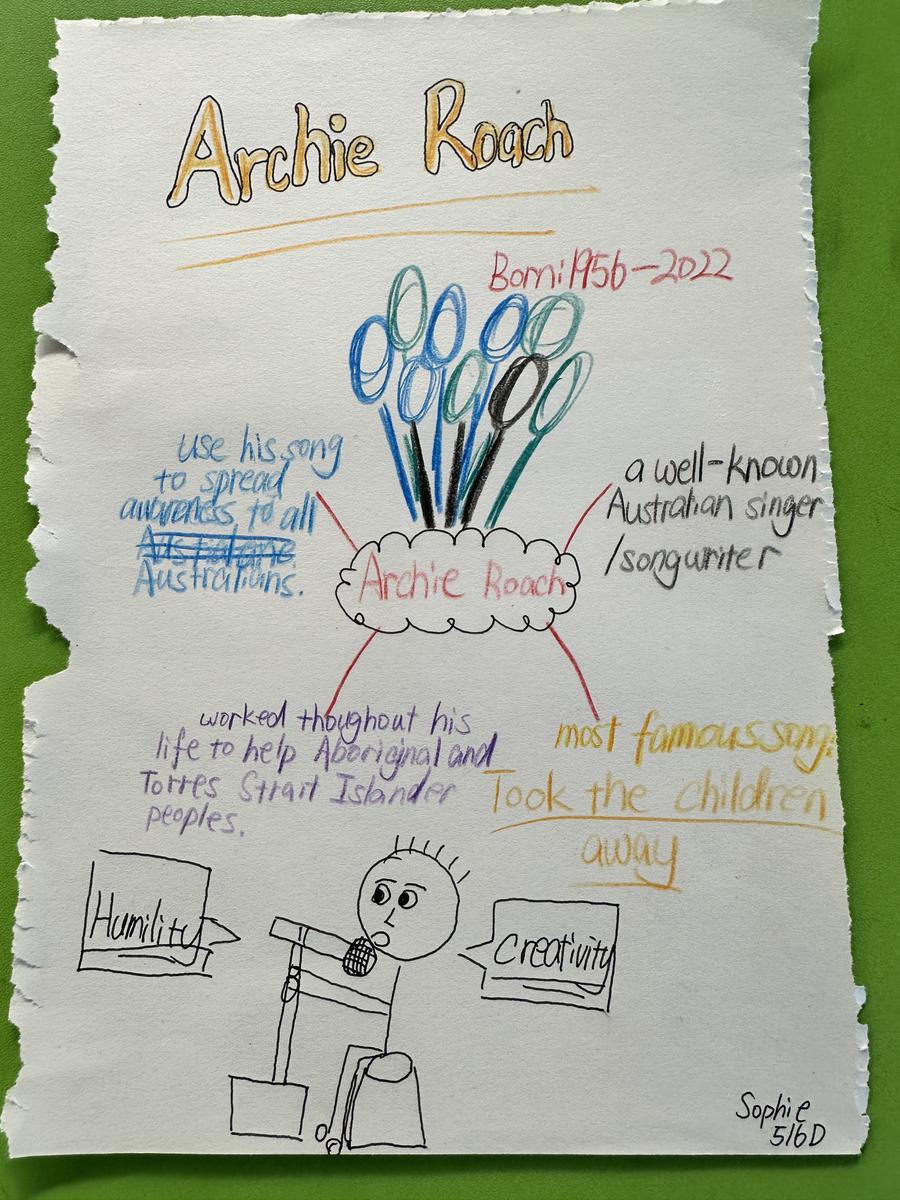 Archie Roach
Born: 1956-2022
use his song
to spread
awareness to all
Australians.
a well-known
Australian singer
/songwriter
Archie Roach
worked thoughout his
life to help Aboriginal and
Torres Strait Islander
peoples.
most famous song:
Took the children
away
Humility
Creativity
Sophie
5/6D